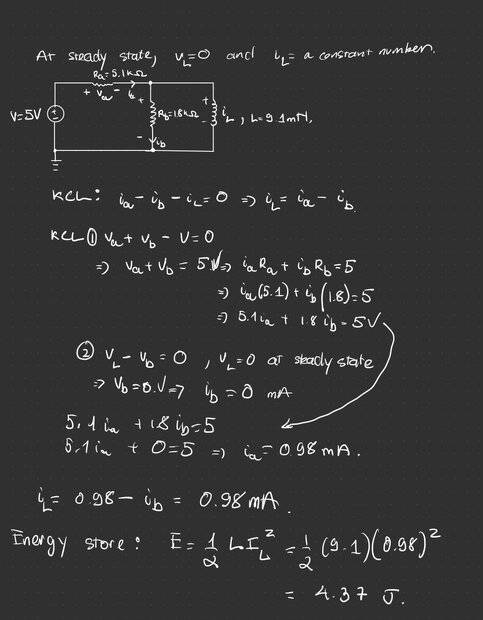 At steady state, v_L=0 and i_L= a constant number.
Ra=5.1kΩ
+ Va - ia
V=5V
+
Rb=1.8kΩ
-
ib
+
-
iL, L=9.1mH,
KCL: ia - ib - iL = 0 => iL = ia - ib.
KCL ① Va + Vb - V = 0
=> Va + Vb = 5V => iaRa + ibRb = 5
=> ia(5.1) + ib(1.8) = 5
=> 5.1ia + 1.8ib = 5V
② VL - Vb = 0 , VL=0 at steady state
=> Vb = 0.V => ib = 0 mA
5.1ia + 1.8ib = 5
5.1ia + 0 = 5 => ia = 0.98mA.
iL = 0.98 - ib = 0.98mA.
Energy store: E = 1/2 LI_L² = 1/2 (9.1)(0.98)²
= 4.37 J.